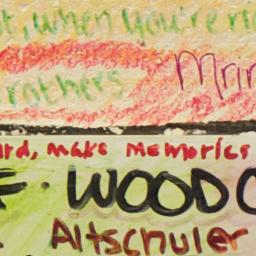 , when you're
Mrin
rothers
ard, make memories
F. WOOD
Altschuler